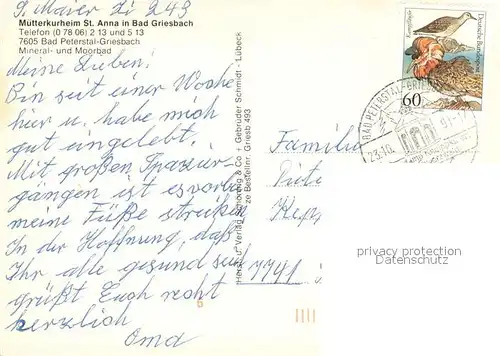 S. Maier Zi 243
Mütterkurheim St. Anna in Bad Griesbach
Telefon (0 78 06) 2 13 und 5 13
7605 Bad Peterstal-Griesbach
Mineral- und Moorbad
Meine Lieben!
Bin seit einer Woche
hier u. habe mich
gut eingelebt.
Mit großen Spazier-
gängen ist es vorbei
meine Füße streiken
In der Hoffnung, daß
Ihr alle gesund seid
grüßt Euch recht
herzlich
Oma
Gebrüder Schmidt - Lübeck
Bestellnr. Griesb 493
Familie
7741
Deutsche Bundespost
60
BAD PETERSTAL-GRIESBACH
23.10.
91-17
privacy protection
Datenschutz